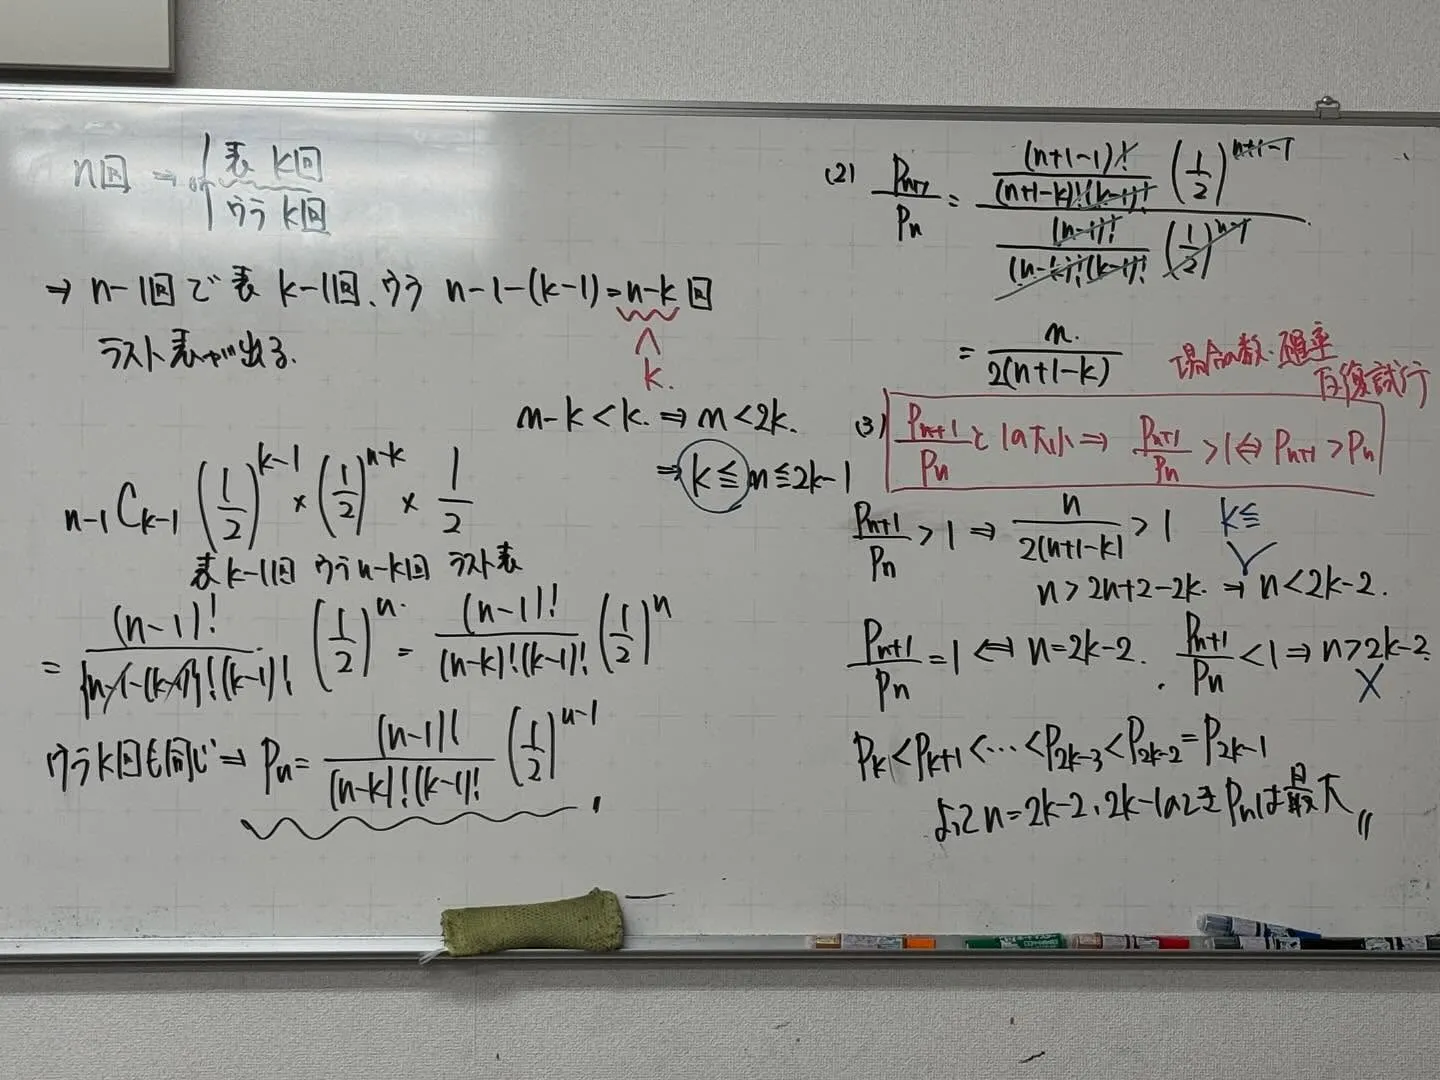 n回 → or { 表 k回
ウラ k回
⇒ n-1回で表 k-1回、ウラ n-1-(k-1)=n-k回
∧
k.
ラスト表が出る.
n-k<k. ⇒ n<2k.
⇒ k≦n≦2k-1
n-1Ck-1 (1/2)^k-1 × (1/2)^n-k × 1/2
表k-1回 ウラn-k回 ラスト表
= (n-1)!/{n-1-(k-1)}!(k-1)! (1/2)^n. = (n-1)!/(n-k)!(k-1)! (1/2)^n
ウラk回も同じ⇒ Pn= (n-1)!/(n-k)!(k-1)! (1/2)^n-1
(2) Pn+1/Pn = (n+1-1)!/(n+1-k)!(k-1)! (1/2)^n+1-1 / (n-1)!/(n-k)!(k-1)! (1/2)^n-1
= n./2(n+1-k)
場合の数・確率
反復試行
(3) Pn+1/Pn と1の大小⇒ Pn+1/Pn >1⇔ Pn+1 >Pn
Pn+1/Pn >1 ⇒ n/2(n+1-k) >1
k≦
n>2n+2-2k. ⇒ n<2k-2.
Pn+1/Pn =1 ⇔ n=2k-2. Pn+1/Pn <1 ⇒ n>2k-2.
×
Pk<Pk+1<…<P2k-3<P2k-2=P2k-1
よって n=2k-2, 2k-1のとき Pnは最大 〃